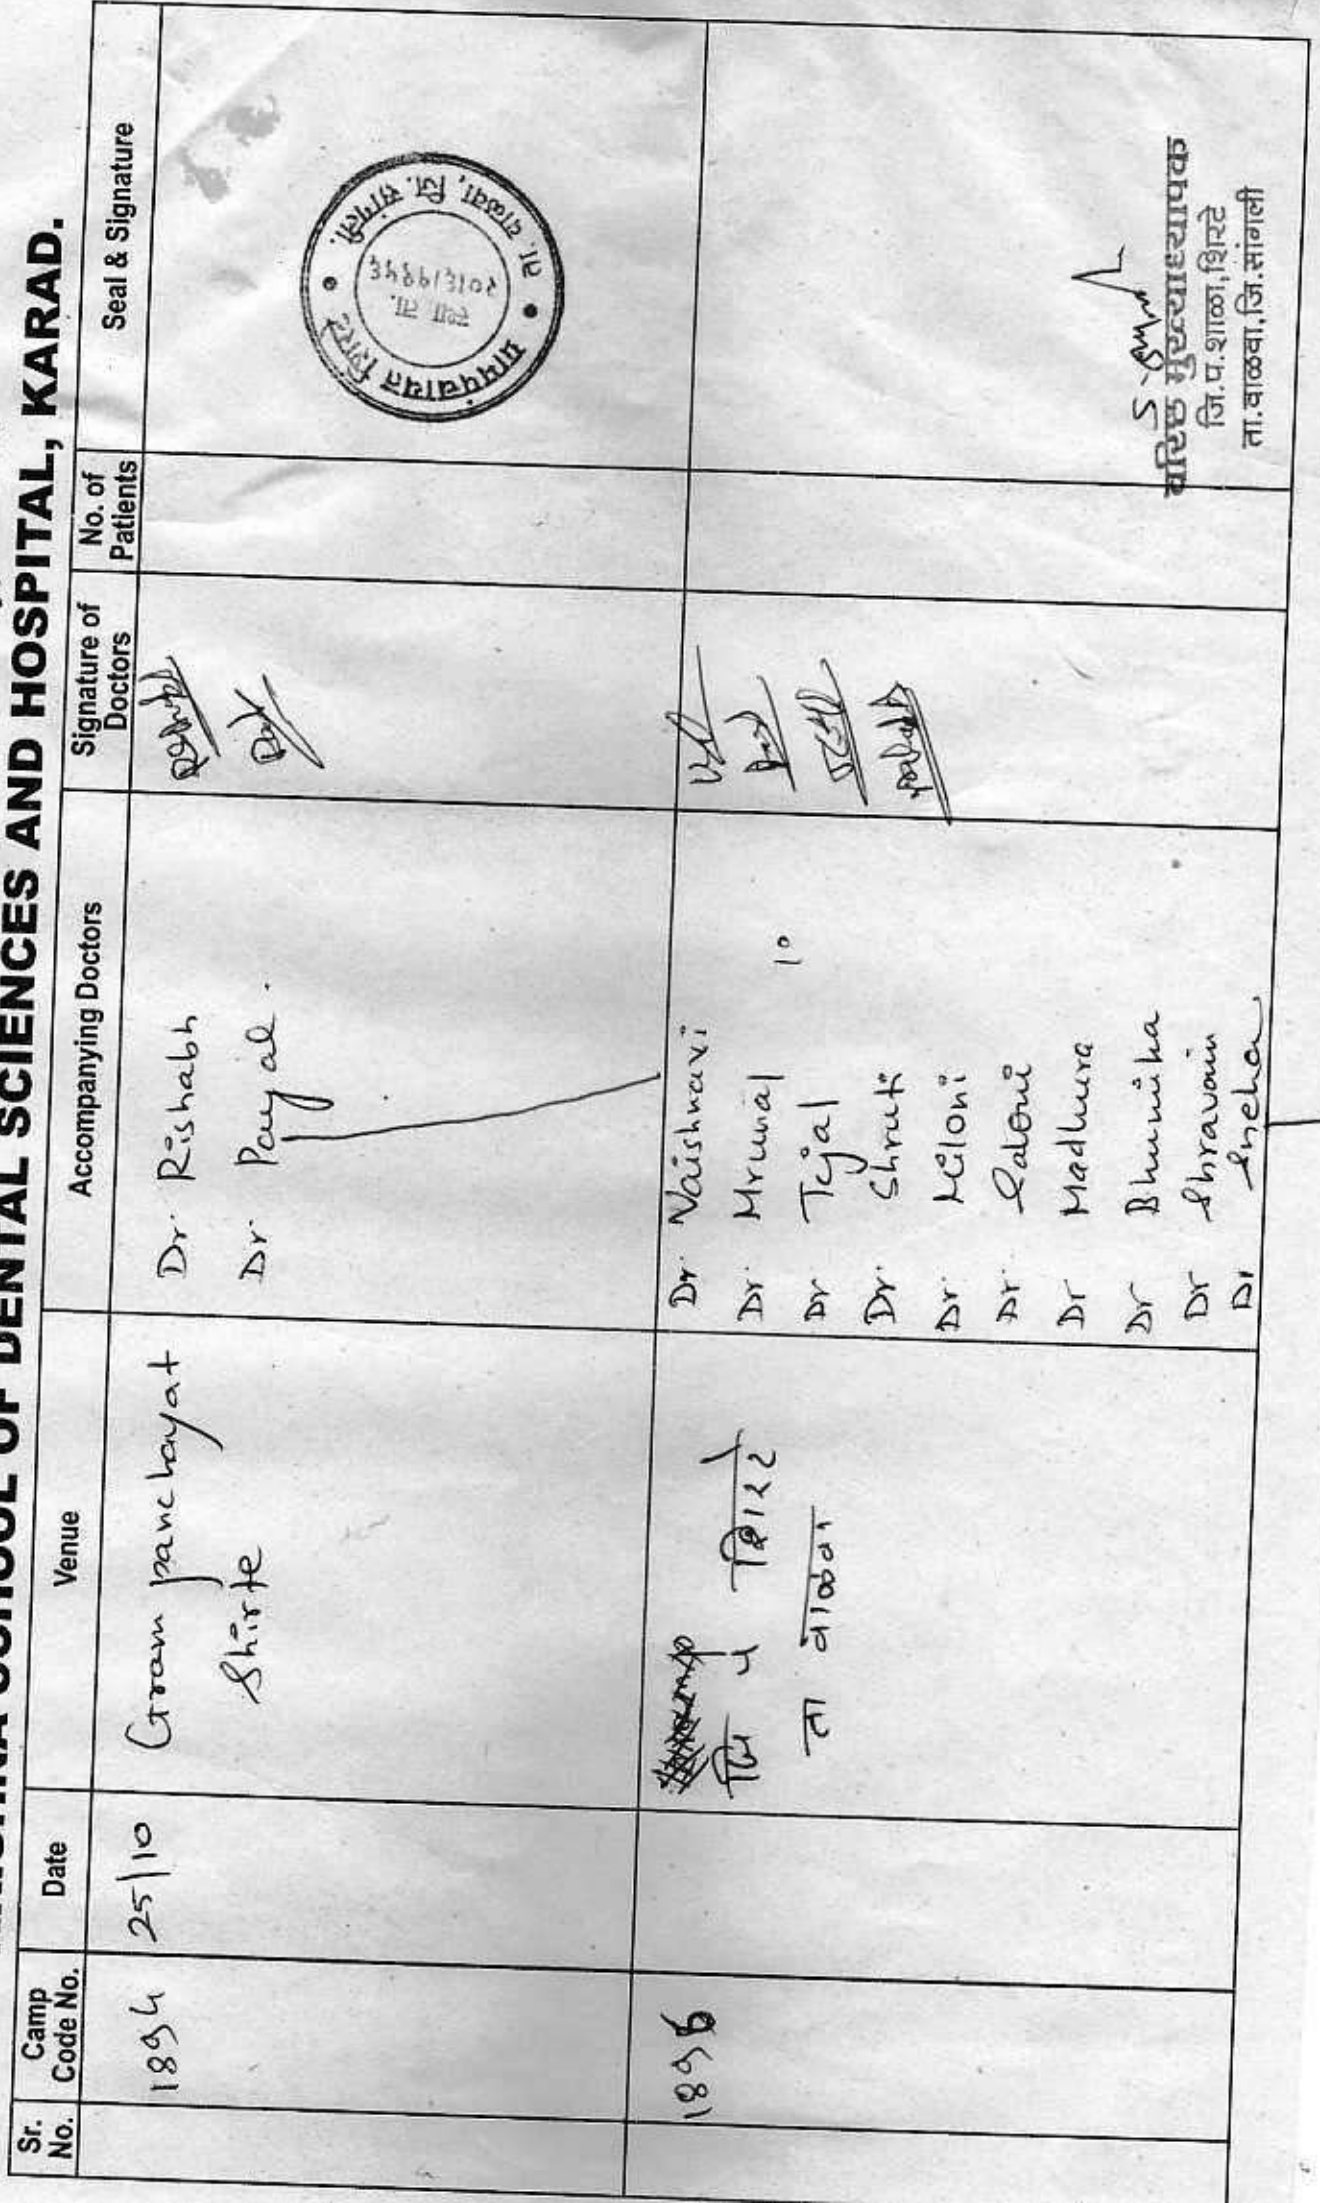 SCHOOL OF DENTAL SCIENCES AND HOSPITAL, KARAD.
Sr. No.
Camp Code No.
Date
Venue
Accompanying Doctors
Signature of Doctors
No. of Patients
Seal & Signature
1894
25/10
Gram panchayat
Shirte
Dr. Rishabh
Dr. Payal.
ग्रामपंचायत शिरटे
ता. वाळवा, जि. सांगली.
स्था ता.
1896
जि प शिरटे
ता वाळवा
Dr. Vaishnavi
Dr. Mrunal 10
Dr Tejal
Dr. Shruti
Dr. Miloni
Dr. Saloni
Dr Madhura
Dr Bhumika
Dr Shravani
Dr Sneha
वरिष्ठ मुख्याध्यापक
जि.प.शाळा,शिरटे
ता.वाळवा,जि.सांगली